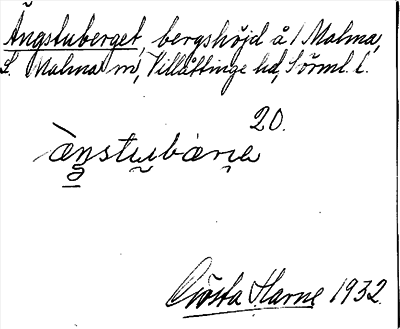 Ängstuberget, bergshöjd å 1 Malma,
L. Malma sn, Villåttinge hd, Sörml. l.
20.
Gösta Harne 1932